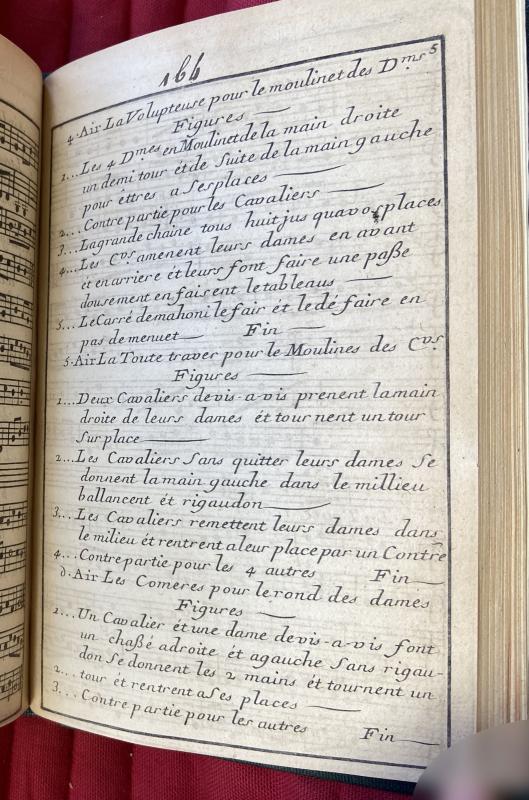 164
5
4. Air La Volupteuse pour le moulinet des D.ms
Figures
1... Les 4 D.mes en Moulinet de la main droite
un demi tour ét de Suite de la main gauche
pour ettres a Ses places
2... Contre partie pour les Cavaliers
3... La grande chaine tous huit jus qua vos places
4... Les C.vs amenent leurs dames en avant
ét en arriere ét leurs font faire une paße
dousement en faisent le tableaus
5... Le Carré de mahoni le fair ét le dé faire en
pas de menuet Fin
5. Air La Toute traver pour le Moulines des C.vs
Figures
1... Deux Cavaliers devis-a-vis prenent la main
droite de leurs dames ét tour nent un tour
Sur place
2... Les Cavaliers Sans quitter leurs dames Se
donnent la main gauche dans le millieu
ballancent ét rigaudon
3... Les Cavaliers remettent leurs dames dans
le milieu ét rentrent a leur place par un Contre
4... Contre partie pour les 4 autres Fin
6. Air Les Comeres pour le rond des dames
Figures
1... Un Cavalier ét une dame devis-a-vis font
un chaßé a droite ét a gauche Sans rigau-
don Se donnent les 2 mains ét tournent un
2... tour ét rentrent a Ses places
3... Contre partie pour les autres Fin